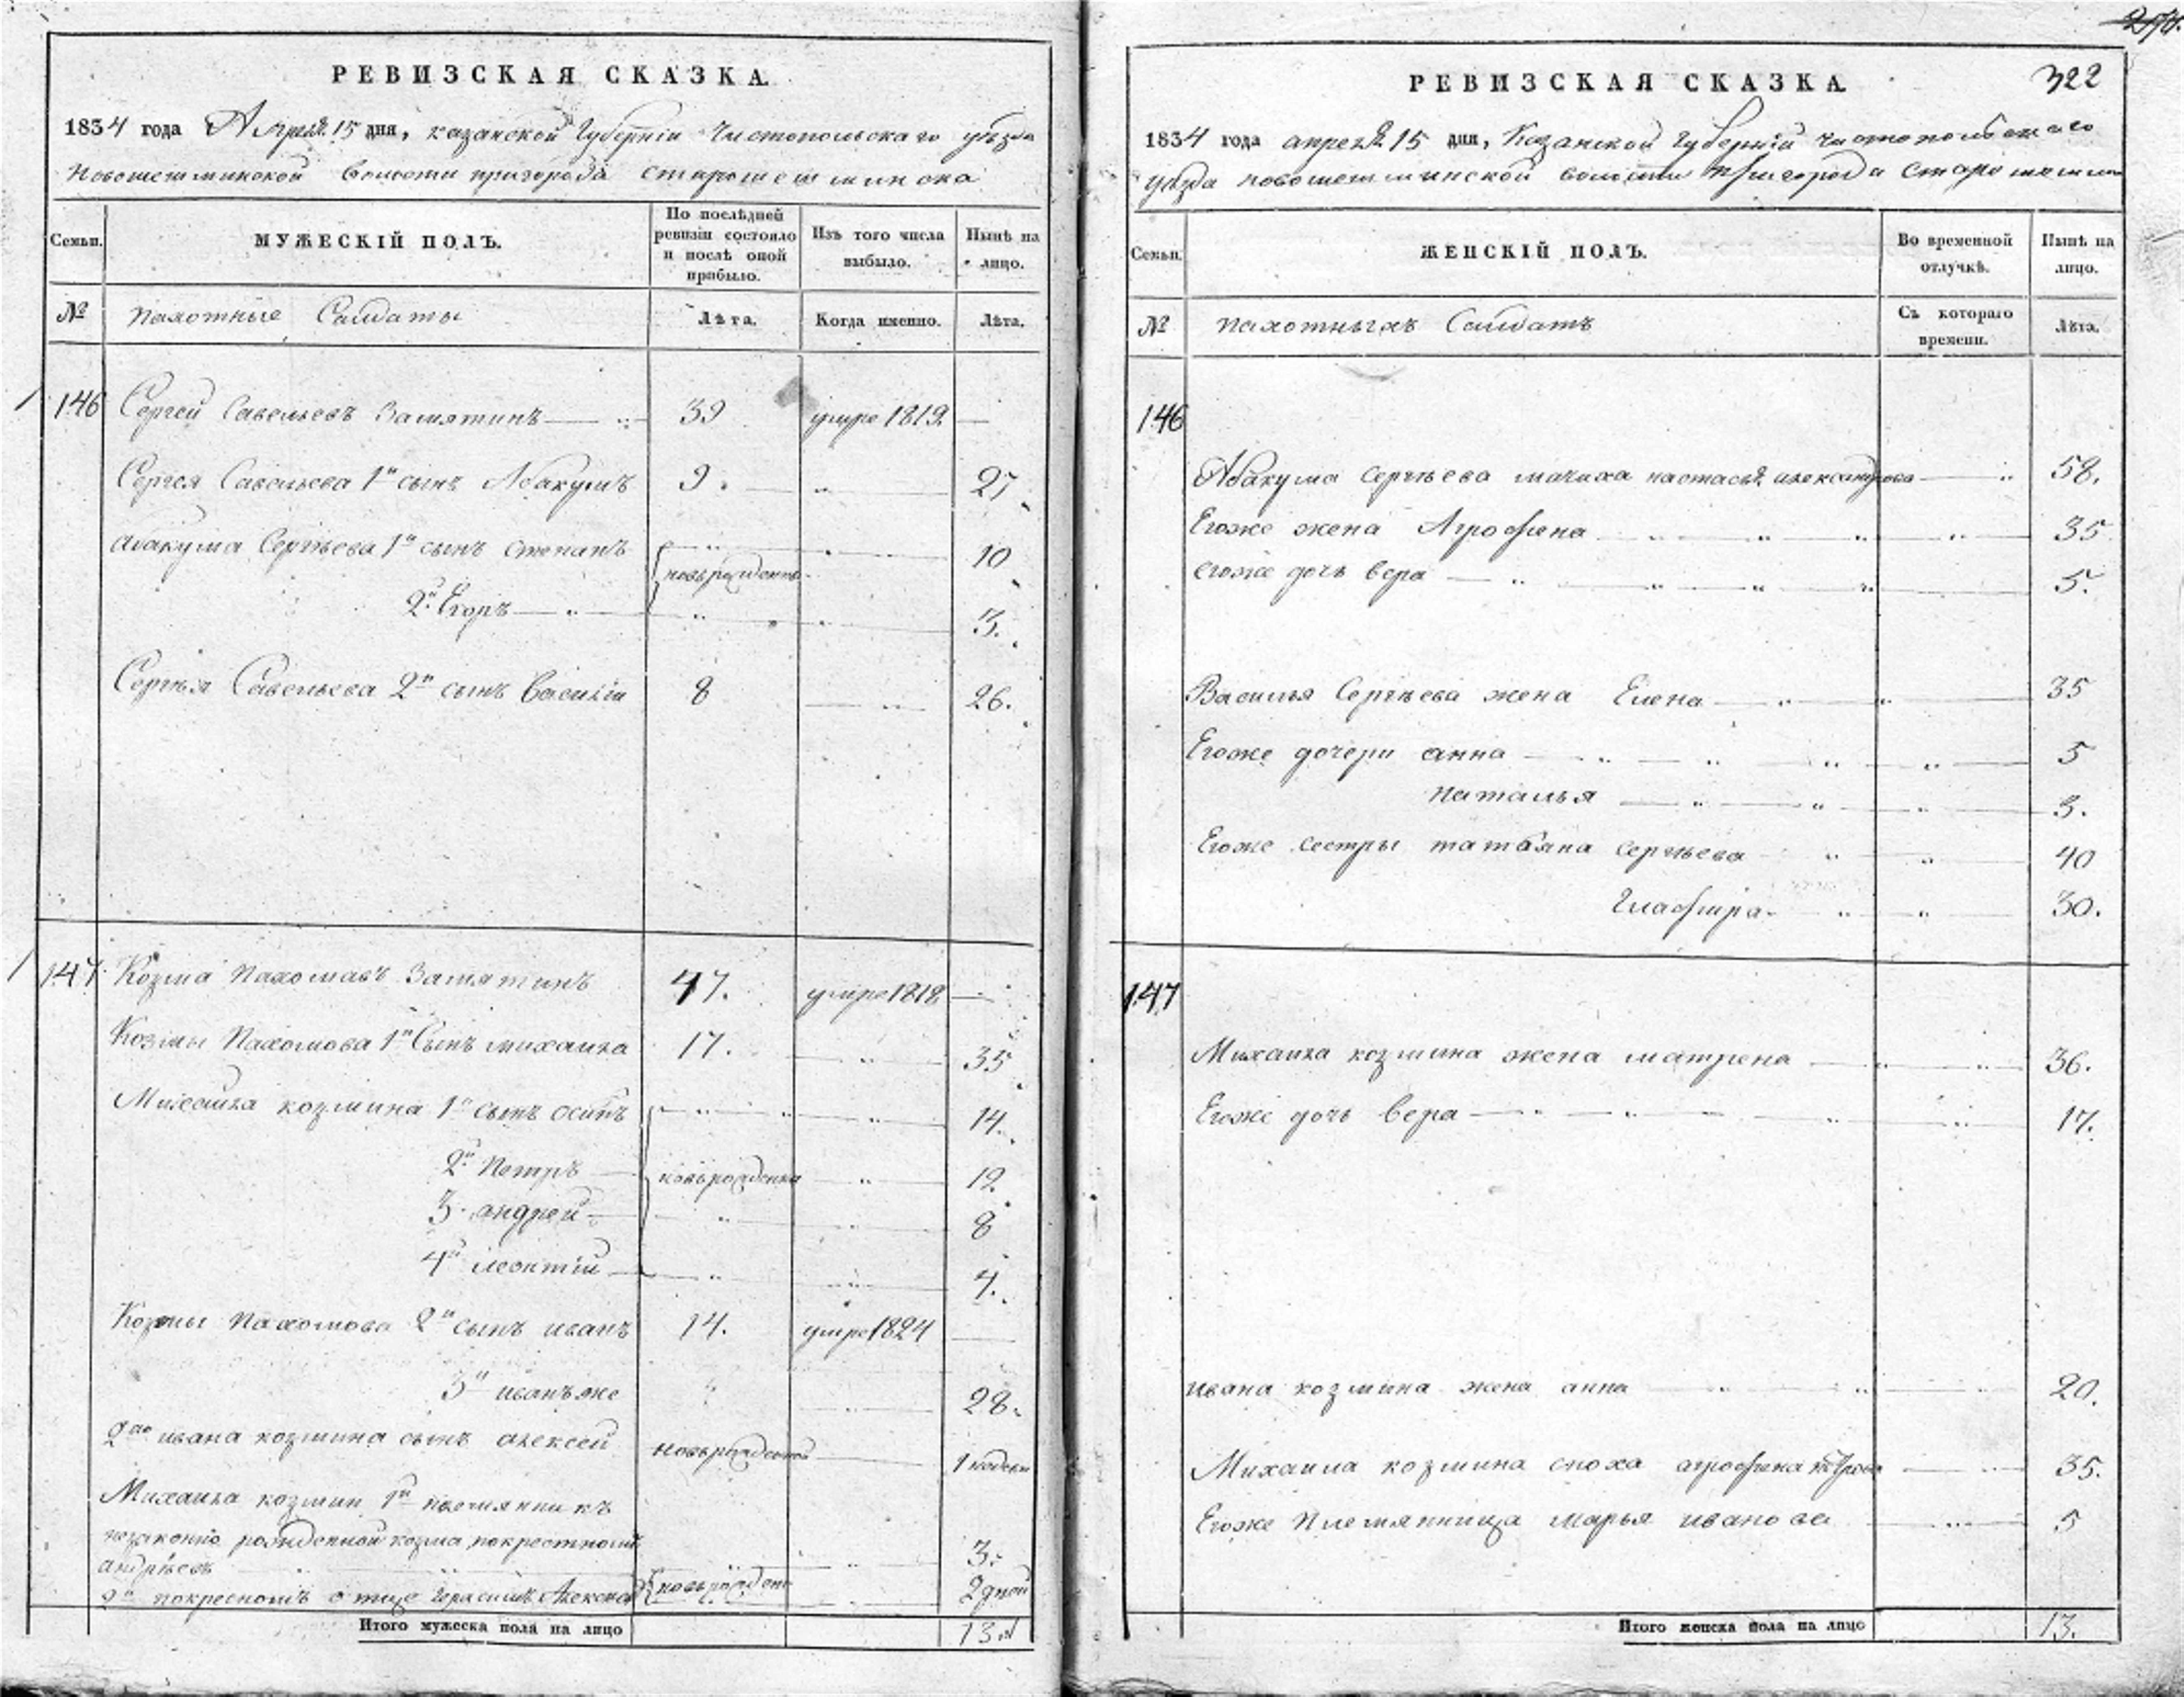 РЕВИЗСКАЯ СКАЗКА.
1834 года Апреля 15 дня, казанской Губернiи Чистопольскаго уѣзда
Новошешминской волости пригорода старошешминска
Семьи.
МУЖЕСКIЙ ПОЛЪ.
По послѣдней ревизiи состояло и послѣ оной прибыло.
Изъ того числа выбыло.
Нынѣ на лицо.
№
пахотные Салдаты
Лѣта.
Когда именно.
Лѣта.
146 Сергей Савельевъ Замятинъ 39 умре 1819. —
Сергея Савельева 1й сынъ Абакумъ 9. 27
абакума Сергѣева 1й сынъ степанъ 10
новърожденны
2й Егоръ 3.
Сергѣя Савельева 2й сынъ Василiи 8 26.
147 Козма Пахомавъ Замятинъ 47. умре 1818 —
Козмы Пахомова 1й Сынъ михаила 17. 35
Михаила козмина 1й сынъ осипъ 14.
2й Петръ новърожденна 12.
3й андрей 8
4й леонтiи 4.
Козмы Пахомова 2й сынъ иванъ 14. умре 1824 —
3й иванъ же 28.
2го ивана козмина сынъ алексей новърожденной 1 недели
Михаила козмин 1й племянникъ
незаконно рожденной козма покрестному 3.
андрѣевъ
2й покресномъ отце Герасимъ новърожден 2 дней
Итого мужеска пола на лицо 13.
322
РЕВИЗСКАЯ СКАЗКА.
1834 года апреля 15 дня, Казанской Губернiй чистопольскаго
уѣзда новошешминской волости Пригорода Старошешмин
Семьи.
ЖЕНСКIЙ ПОЛЪ.
Во временной отлучкѣ.
Нынѣ на лицо.
№
пахотныхъ Салдатъ
Съ котораго времени.
Лѣта.
146
Абакума сергѣева мачиха настасья александрова 58.
Егоже жена Агрофена 35
егоже дочь вера 5.
Василья Сергѣева жена Елена 35
Егоже дочери анна 5
Наталья 3.
Егоже сестры татьяна сергѣева 40
Глафира 30.
147
Михаила козмина жена матрена 36.
Егоже дочь Вера 17.
ивана козмина жена анна 20.
Михаила козмина сноха агрофена петрова 35.
Егоже племянница марья иванова 5
Итого женска пола на лицо 13.